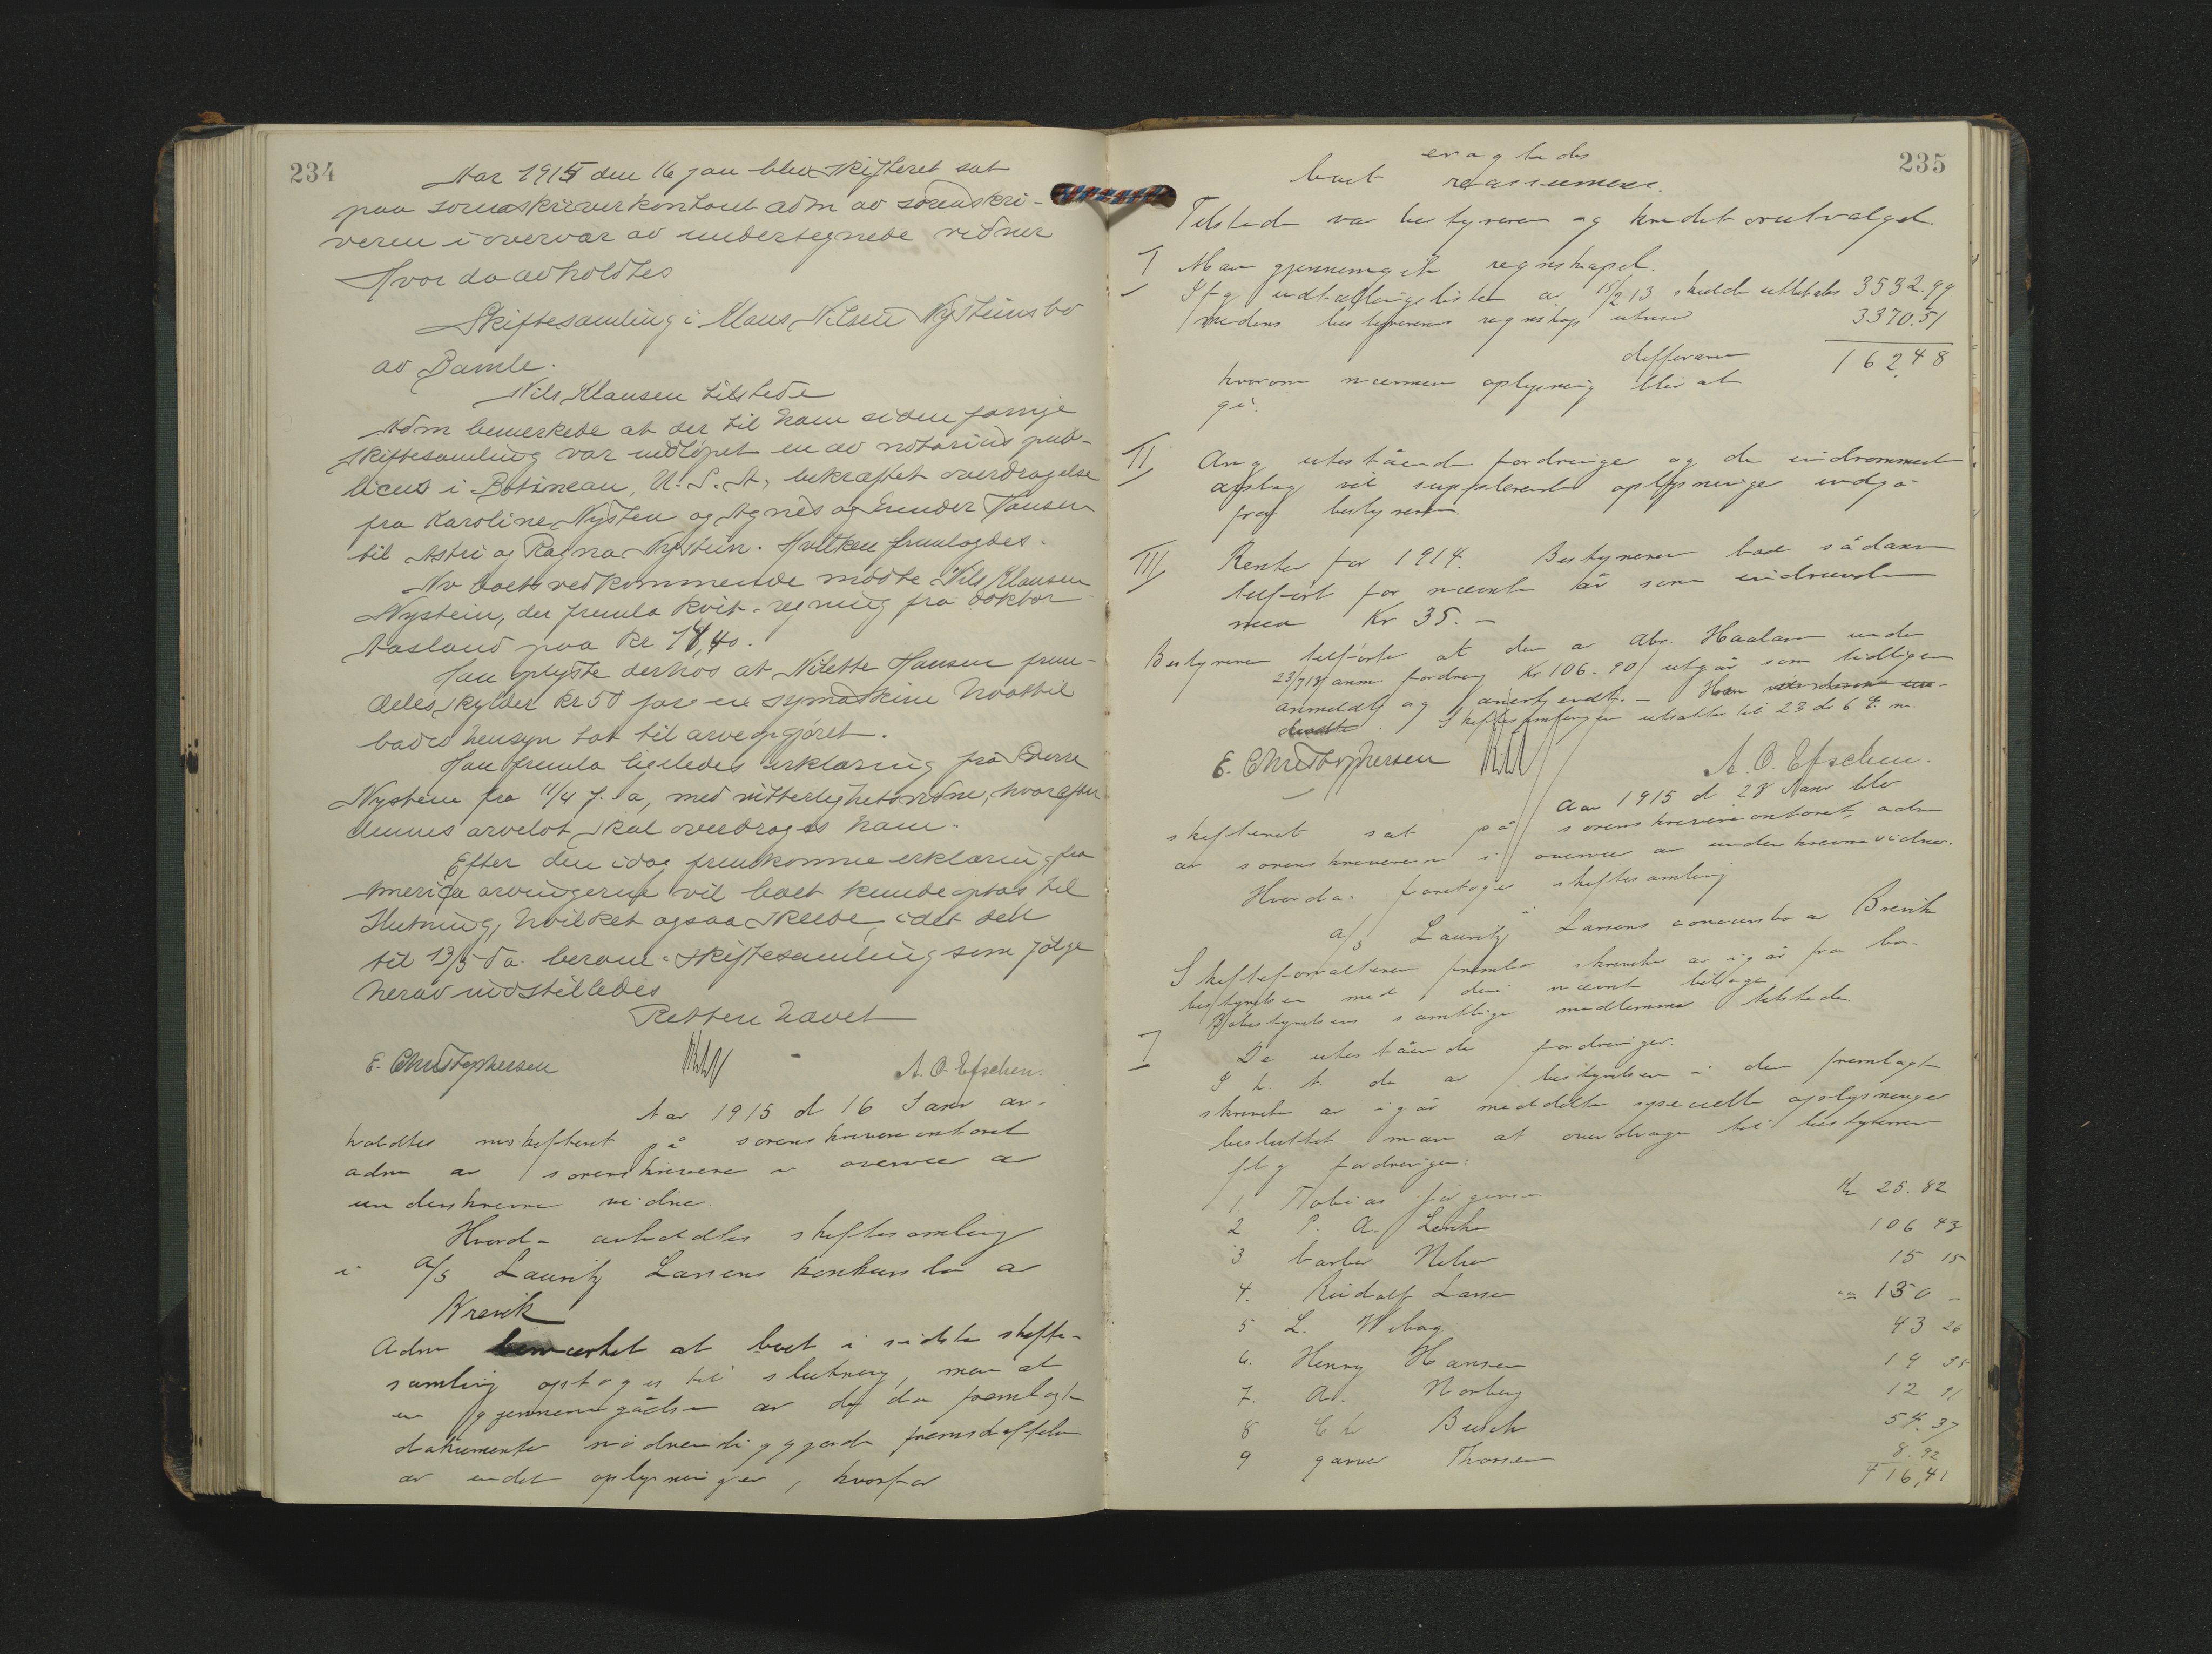 234
Aar 1915 den 16 jan blev skifteret sat
paa sorenskriverkontoret adm av sorenskri-
veren i overvær av undertegnede vidner
Hvor da avholdtes
Skiftesamling i Klaus Nilsen Nysteins bo
av Bamle.
Nils Klausen tilstede
Adm bemerkede at der til ham siden forrige
skiftesamling var indløpet en av notarius pub-
licus i Botineau, U.S.A. bekræftet overdragelse
fra Karoline Nysten og Agnes og Hansen
til Astri og Ragna Nystein. Hvilken fremlagdes.
For boets vedkommende mødte Nils Klausen
Nystein, der fremla kvit. regning fra doktor
Aasland paa kr 14,40.
Han oplyste derhos at Nilette Hansen frem-
deles skylder kr 50 for en symaskine hvortil
bades hensyn tat til arveopgjøret.
Han fremla ligeledes erklæring fra
Nystein fra 11/4 f. a, med vitterlighetsvidne, hvorefter
dennes arvelot skal overdrages ham.
Efter den idag fremkomne erklæring fra
America arvingerne vil boet kunde optas til
slutning, hvilket ogsaa skede, idet den
til 13/3 d.a. beram. skiftesamling som følge
herav indstilledes
Retten hævet
E. Christophersen
A. O. Efschen.
Aar 1915 d 16 Janr av-
holdtes skifteret på sorenskriverkontoret
adm av sorenskriveren i overvær av
underskrevne vidne.
Hvorda avholdtes skiftesamling
i A/S Lauritz Larsens konkursbo av
Brevik
Adm bemerket at boet i sidste skifte-
samling optoges til slutning, men at
en gjennemgåelse av de da fremlagte
dokumenter nødvendiggjorde fremskaffelse
av endel oplysninger, hvorfor
235
eragtedes
boet reassumeres.
Tilstede var bestyreren og kreditorutvalget.
I Man gjennemgik regnskapet.
Ifg indtællingslisten av 15/2 13 skulde utlodes 3532.99
medens bestyrerens regnskap utviser 3370.51
differanse 162.48
hvorom nærmere oplysning blir at
gi.
II Ang utestående fordringer og de indrømmede
avslag vil supplerende oplysninger indgå
fra bestyreren.
III Renter for 1914. Bestyreren bad sådanne
tilført for nævnte år som indvundne
med Kr 35.-
Bestyreren tilførte at den av Abr. Haaland under
23/7 13 anm. fordring Kr 106.90 utgår som tidligere
anmeldt og anerkjendt.- Han
Skiftesamlingen utsattes til 23 ds 6 E. m.
E. Christophersen
A. O. Efschen.
Aar 1915 d 28 Janr blev
skifteret sat på sorenskriverkontoret, adm
av sorenskriveren i overvær av underskrevne vidner.
Hvorda foretoges skiftesamling
A/S Lauritz Larsens concursbo av Brevik
Skifteforvalteren fremla skrivelse av igår fra bo-
bestyrelsen med deri nævnte bilage
Bobestyrelsens samtlige medlemmer tilstede
I De utestående fordringer.
I h. t. de av bestyrelsen i den fremlagte
skrivelse av igår meddelte specielle oplysninger
besluttet man at overdrage til bestyreren
flg fordringer:
1. Tobias Jørgensen Kr 25.82
2 P. A. Lerche 106 43
3 barber Nilsen 15 15
4. Rudolf Larsen 130 -
5 L. Wiborg 43 26
6. Henry Hansen 19 55
7. A. Norberg 12 91
8 Chr Busch 54.37
9 garver Thorsen 8.92
416,41